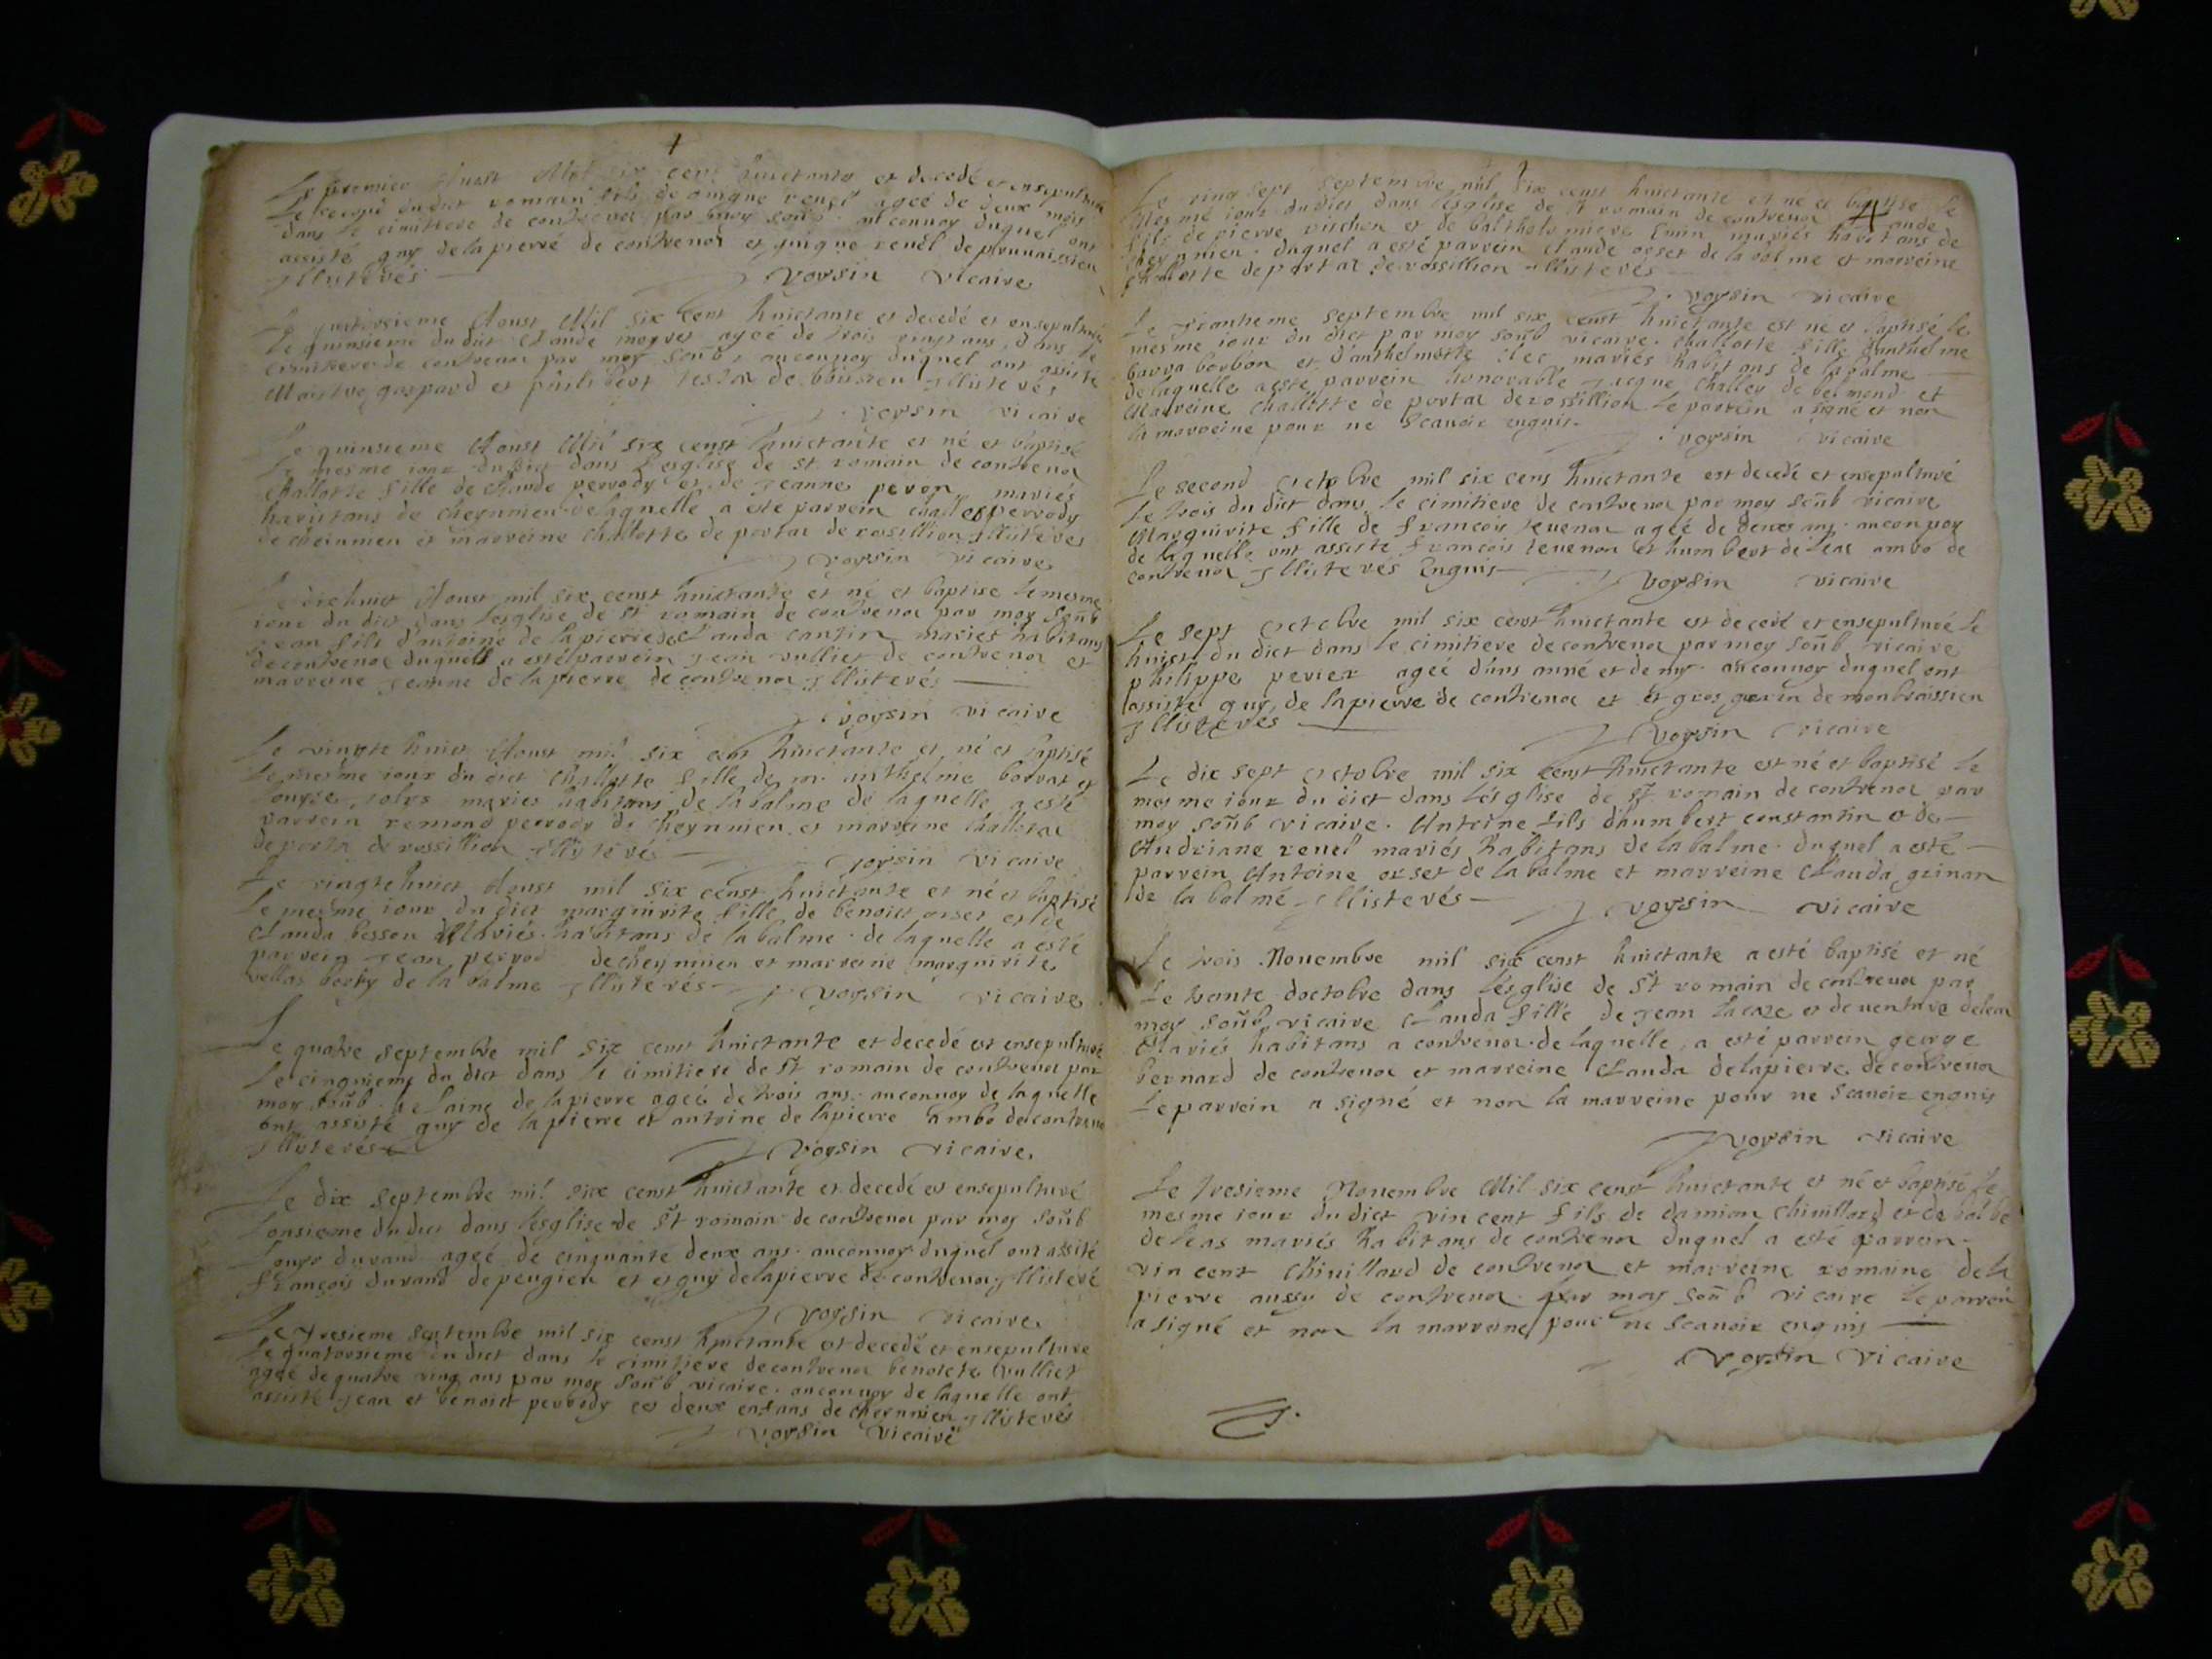 Le premier Aoust Mil six cens huictante et decedé et ensepulturé
le second du dict romain fils de onigne revel ageé de deux mois
dans le cimittiere de contrevoz par moy soub. au connoy duquel ont
assisté guy delapierre de contrevoz et revel de
illisterés
Voysin vicaire
Le quatorsieme Aoust Mil six cent huictante et decedé et ensepulturé
le quinsieme du dict Claude ageé de trois vingt ans dans le
cimitiere de contrevoz par moy soub. au connoy duquel ont assisté
Maistre gaspard et philibert de illisterés
voysin vicaire
Le quinsieme Aoust Mil six censt huictante et né et baptisé
le mesme iour du dict dans l'esglise de st romain de contrevoz
Challotte fille de Claude perrody et de Jeanne peron mariés
habitans de cheynnieu de laquelle a esté parrein Challe perrody
de cheinnieu et marreine Challotte de portaz de rossillion illisterés
voysin vicaire
Le dix huict Aoust mil six censt huictante et né et baptisé le mesme
iour du dict dans l'esglise de st romain de contrevoz par moy soub
Jean fils d'antoine de lapierre et Clauda cantin mariés habitans
de contrevoz duquell a esté parrein Jean vulliet de contrevoz et
marreine Jeanne de lapierre de contrevoz illisterés
voysin vicaire
Le vingte huict Aoust mil six cens huictante et né et baptisé
le mesme iour du dict Challotte fille de m. anthelme borrat et
mariés habitans de la balme de laquelle a esté
parrein remond perrody de cheynnieu et marreine Challotte
de porta de rossillion illisterés
voysin vicaire
Le vingtehuict Aoust mil six censt huictante et né et baptisé
le mesme iour du dict marguirite fille de benoict orset et de
Clauda besson Mariés habitans de la balme de laquelle a esté
parrein Jean perrod de cheynnieu et marreine marguirite
de la balme illisterés
voysin vicaire
Le quatre septembre mil six censt huictante et decedé et ensepulturé
le cinquieme du dict dans le cimitiere de st romain de contrevoz par
moy soub. helaine de lapierre ageé de trois ans. au connoy de laquelle
ont assisté guy de lapierre et antoine de lapierre ambo de contrevoz
illisterés
Voysin vicaire
Le dix septembre mil six censt huictante et decedé et ensepulturé
l'onsieme du dict dans l'esglise de st romain de contrevoz par moy soub
Louys durand ageé de cinquante deux ans. au connoy duquel ont assité
François durand de peugieu et et guy delapierre de contrevoz illisteré
Voysin vicaire
Le tresieme septembre mil six censt huictante et decedé et ensepulturé
le quatorsieme du dict dans le cimitiere de contrevoz benoicte vulliet
ageé de quatre vingt ans par moy soub vicaire. au connoy de laquelle ont
assisté Jean et benoict perrody ces deux enfans de cheynnieu illisterés
Voysin vicaire
4
Le ving sept septembre mil six censt huictante et né et baptisé le
mesme iour du dict dans l'esglise de st romain de contrevoz Claude
fils de pierre et de baltholomiere mariés habitans de
cheynnieu. duquel a esté parrein Claude orset de la balme et marreine
Challotte de portaz de rossillion illisterés
voysin vicaire
Le trantieme septembre mil six censt huictante est né et baptisé le
mesme iour du dict par moy soub vicaire. Challotte fille d'anthelme
barra borbon et d'anthelmette mariés habitans de la balme
de laquelle a esté parrein honorable Jacque Challey de belmond et
Marreine Challotte de portaz de rossillion le parrein a signé et non
la marreine pour ne scavoir enquis.
voysin vicaire
Le second octobre mil six cens huictante est decedé et ensepulturé
le trois du dict dans le cimitiere de contrevoz par moy soub vicaire
Marguirite fille de francois tevenon ageé de deux ans. au connoy
de laquelle ont assisté francois tevenon et humbert de leaz ambo de
contrevoz illisterés enquis
Voysin vicaire
Le sept octobre mil six censt huictante est decedé et ensepulturé le
huict du dict dans le cimitiere de contrevoz par moy soub vicaire
philippe perier ageé d'uns anné et demy. au connoy duquel ont
assisté guy de lapierre de contrevoz et et gros de montbraissieu
illisterés
Voysin vicaire
Le dix sept octobre mil six censt huictante est né et baptisé le
mesme iour du dict dans l'ésglise de st romain de contrevoz par
moy soub vicaire. Antoine fils d'humbert constantin et de
Andriane revel mariés habitans de la balme. duquel a esté
parrein Antoine orset de la balme et marreine Clauda grinan
de la balme illisterés
voysin vicaire
Le trois Novembre mil six censt huictante a esté baptisé et né
le trante d'octobre dans l'ésglise de st romain de contrevoz par
moy soub vicaire Clauda fille de Jean lacaze et de venture deleaz
Mariés habitans a contrevoz. de laquelle a esté parrein george
bernard de contrevoz et marreine Clauda delapierre de contrevoz
Le parrein a signé et non la marreine pour ne scavoir enquis
Voysin vicaire
Le tresieme Novembre Mil six censt huictante et né et baptisé le
mesme iour du dict vincent fils de damian Chivillard et de
deleas mariés habitans de contrevoz duquel a esté parrein.
vincent Chivillard de contrevoz et marreine romaine dela
pierre aussy de contrevoz par moy soub vicaire le parrein
a signé et non la marreine pour ne scavoir enquis
Voysin vicaire